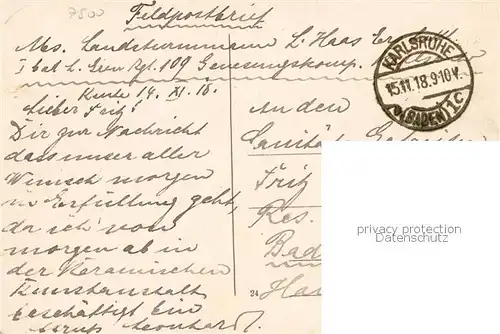 7500
Feldpostbrief
Abs. Landsturmmann L. Haas
I bat L. Gren Rgt. 109 Genesungskomp.
KARLSRUHE
15.11.18.9-10V.
(BADEN) 1c
14. XI. 18.
Lieber Fritz!
Dir zur Nachricht
dass unser aller
Wunsch morgen
in Erfüllung geht,
da ich vom
morgen ab in
der Keramischen
Kunstanstalt
beschäftigt bin
Gruß Leonhard.
An den
Sanitäts
Fritz
Res.
Bad
24 Ha
privacy protection
Datenschutz